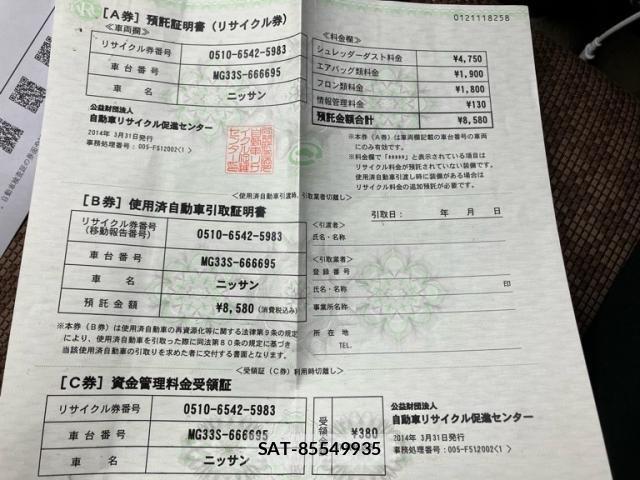 [A券] 預託証明書 (リサイクル券)
0121118258
≪車両欄≫
リサイクル券番号 0510-6542-5983
車台番号 MG33S-666695
車名 ニッサン
≪料金欄≫
シュレッダーダスト料金 ¥4,750
エアバッグ類料金 ¥1,900
フロン類料金 ¥1,800
情報管理料金 ¥130
預託金額合計 ¥8,580
公益財団法人
自動車リサイクル促進センター
2014年 3月31日発行
事務処理番号：005-F512002<1 >
※本券（A券）は車両欄記載の車台番号の車両
にのみ有効です。
※料金欄で「*****」と表示されている項目は
リサイクル料金が預託されていない装備です。
使用済自動車引渡し時に装備がある場合は
リサイクル料金の追加預託が必要です。
<使用済自動車引渡時、引取業者切離し>
[B券] 使用済自動車引取証明書
リサイクル券番号
(移動報告番号) 0510-6542-5983
車台番号 MG33S-666695
車名 ニッサン
預託金額 ¥8,580 (消費税込み)
引取日： 年 月 日
<引渡者>
氏名・名称
<引取業者>
登録番号
氏名・名称 印
事業所名称
所在地
TEL.
※本券（B券）は使用済自動車の再資源化等に関する法律第9条の規定
により、使用済自動車を引取った際に同法第80条の規定に基づき
当該使用済自動車の引取りを求めた者に交付する書面となります。
<受領証（C券）利用時切離し>
[C券] 資金管理料金受領証
リサイクル券番号 0510-6542-5983
車台番号 MG33S-666695
車名 ニッサン
受領金 ¥380
公益財団法人
自動車リサイクル促進センター
2014年 3月31日発行
事務処理番号：005-F512002<1 >
SAT-85549935